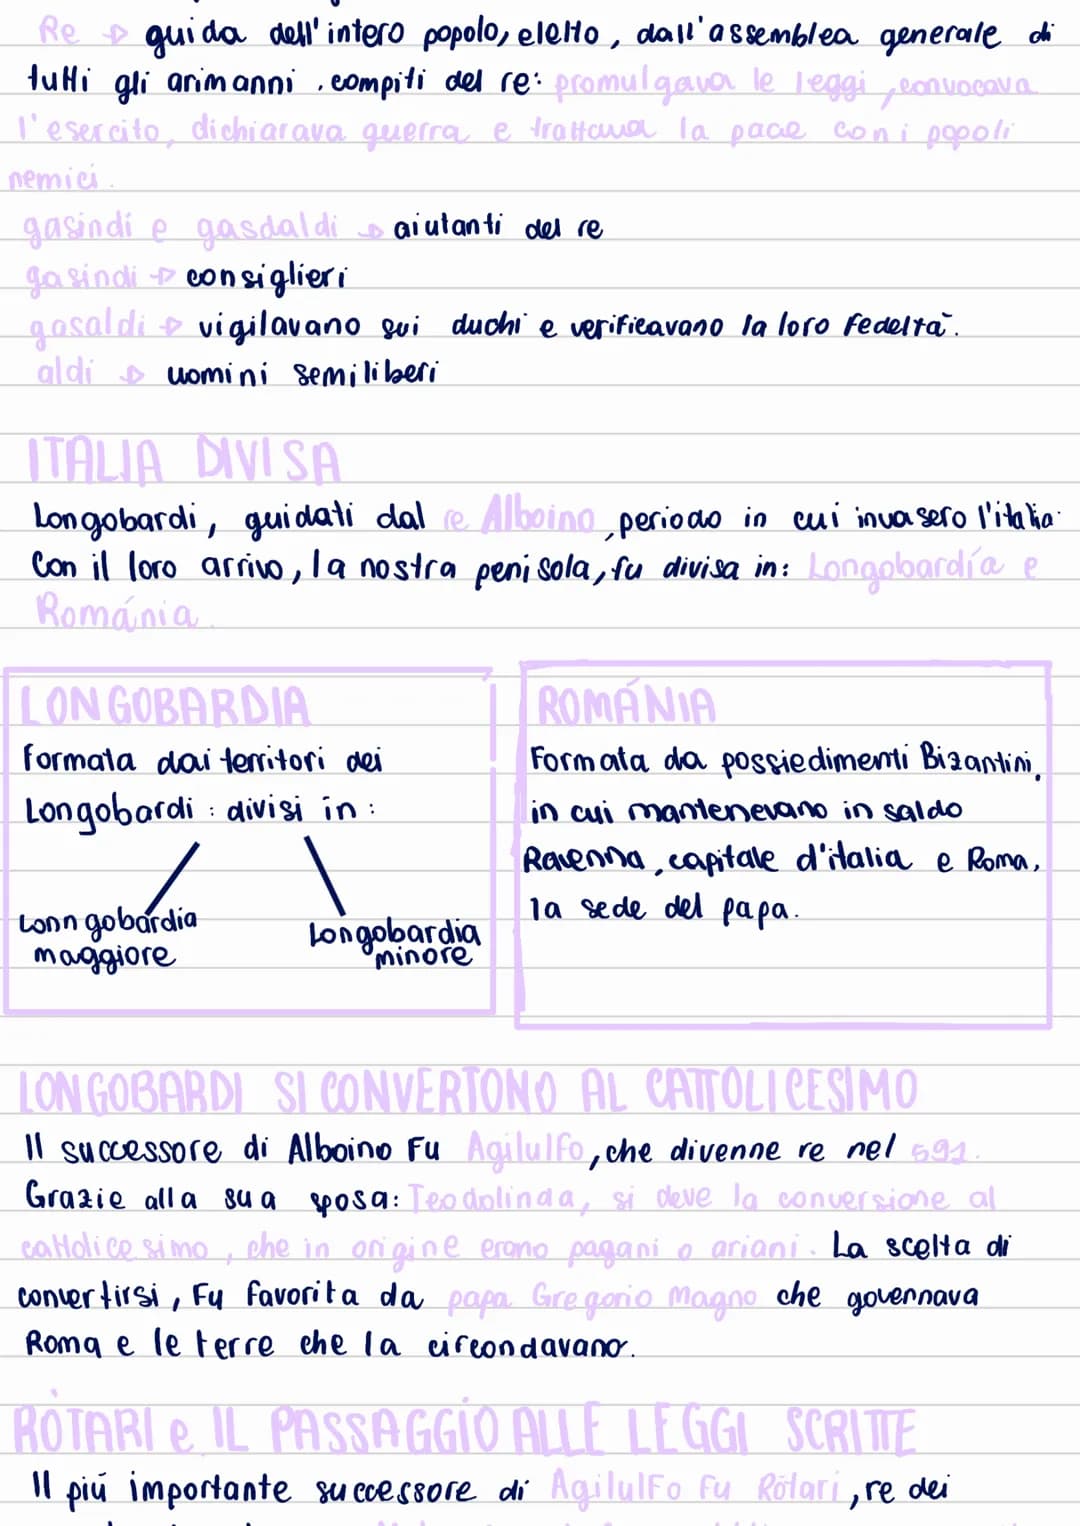 Re → guida dell'intero popolo, eletto, dall'assemblea generale di
tutti gli arimanni. compiti del re: promulgava le leggi, convocava
l'esercito, dichiarava guerra e trattava la pace con i popoli
nemici.
gasindi e gasdaldi → aiutanti del re
gasindi → consiglieri
gasaldi → vigilavano sui duchi e verificavano la loro fedeltà.
aldi → uomini semiliberi
ITALIA DIVISA
Longobardi, guidati dal re Alboino, periodo in cui invasero l'italia.
Con il loro arrivo, la nostra penisola, fu divisa in: Longobardía e
Románia.
LONGOBARDIA
formata dai territori dei
Longobardi: divisi in:
Lonngobardia
maggiore
Longobardia
minore
ROMÁNIA
Formata da possiedimenti Bizantini,
in cui mantenevano in saldo
Ravenna, capitale d'italia e Roma,
la sede del papa.
LONGOBARDI SI CONVERTONO AL CATTOLICESIMO
Il successore di Alboino Fu Agilulfo, che divenne re nel 591.
Grazie alla sua sposa: Teodolinda, si deve la conversione al
cattolicesimo, che in origine erano pagani o ariani. La scelta di
convertirsi, Fu favorita da papa Gregorio Magno che governava
Roma e le terre che la circondavano.
RÒTARI e IL PASSAGGIO ALLE LEGGI SCRITTE
Il piú importante successore di Agilulfo fu Ròtari, re dei